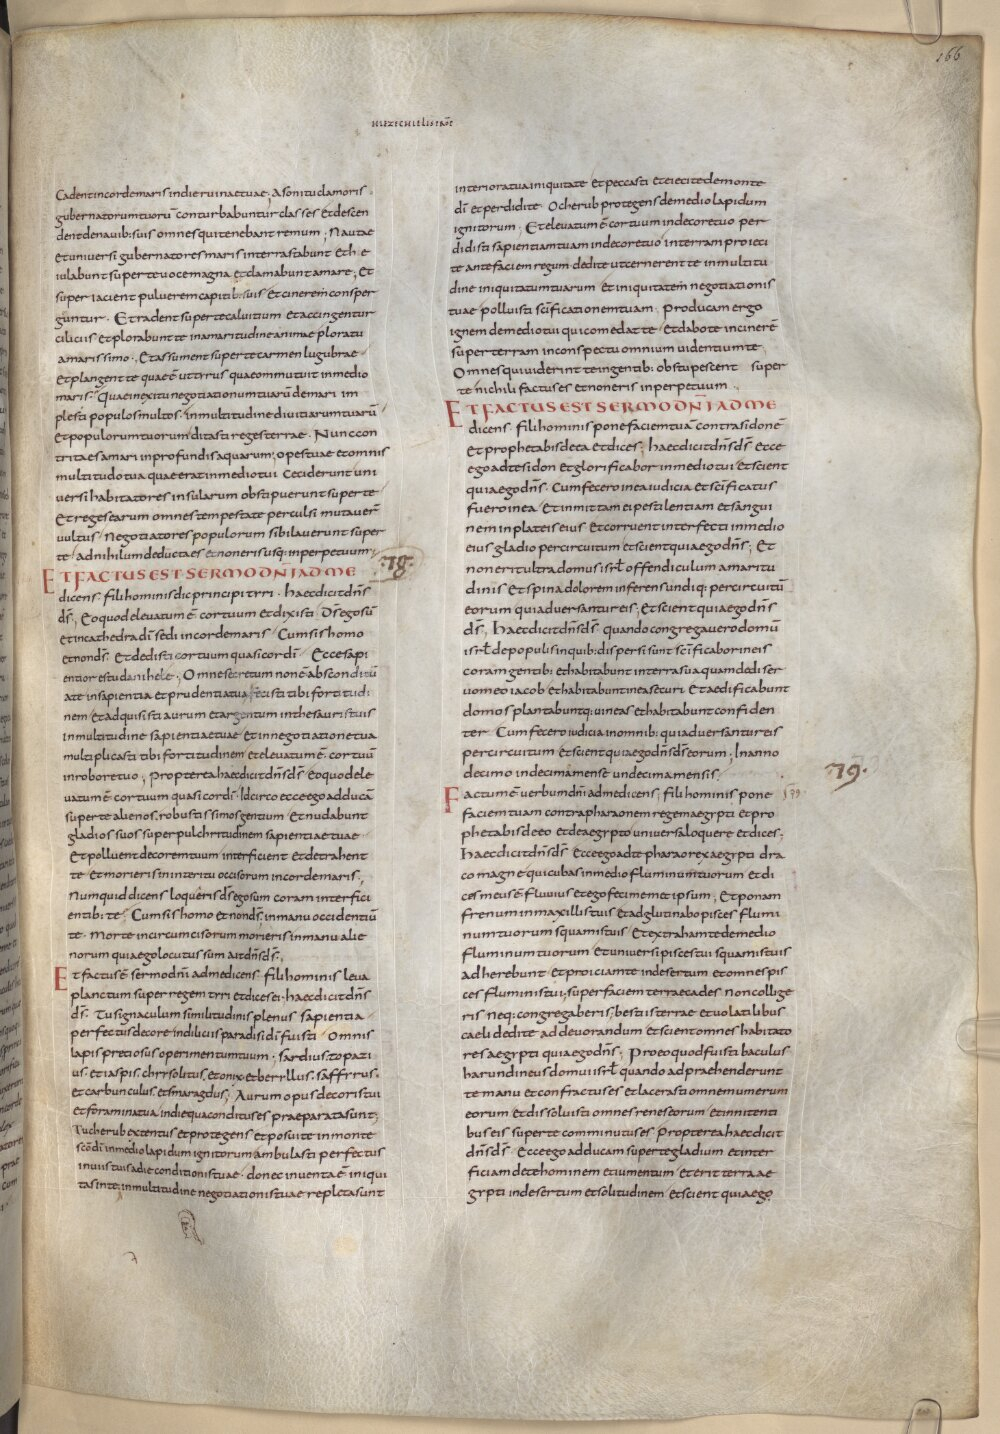 166
HIEZECHIELIS PROF̄
Cadent in corde maris in die ruinae tuae; A sonitu clamoris
gubernatorum tuorū conturbabuntur classes Et descen
dent de navib: suis omnes qui tenebant remum; Nautae
et universi gubernatores maris in terra stabunt Et h e
iulabunt super te voce magna et clamabunt amare; Et
super iacient pulverem capitib: suis Et cinerem consper
guntur. Et radent super te calvitium et accingentur
ciliciis Et plorabunt te in amaritudine animae ploratu
amarissimo. Et assument super te carmen lugubrae
Et plangent te quae ē ut tyrus quae ommutuit in medio
maris. Quae in exitu negotiationum tuarū de mari im
plesti populos multos. in multitudine divitiarum tuarū
Et populorum tuorum ditasti reges terrae. Nunc con
trita es a mari in profundis aquarum; opes tuae et omnis
multitudo tua quae erat in medio tui Ceciderunt uni
versi habitatores insularum obstipuerunt super te
Et reges earum omnes tempestate perculsi mutaverī
vultus Negotiatores populorum sibilaverunt super
te ad nihilum deducta es et non eris usq: in perpetuum;
78.
ET FACTUS EST SERMO DN̄I AD ME
dicens. Fili hominis dic principi tyri. Haec dicit dn̄s
ds̄; Eo quod elevatum ē cor tuum et dixisti Ds̄ ego sū
et in cathedra dī sedi in corde maris Cum sis homo
et non ds̄. Et dedisti cor tuum quasi cor dī Ecce sapi
entior es tu danihele; Omne secretum non ē absconditū
a te in sapientia et prudentia tua fecisti tibi fortitudi
nem Et adquisisti aurum et argentum in thesauris tuis
In multitudine sapientiae tuae Et in negotiatione tua
multiplicasti tibi fortitudinem et elevatum ē. cor tuū
in robore tuo; Propterea haec dicit dn̄s ds̄ Eo quod ele
vatum ē cor tuum quasi cor dī. Idcirco ecce ego adducā
super te alienos. robustissimos gentium Et nudabunt
gladios suos super pulchritudinem sapientiae tuae
Et polluent decorem tuum interficient Et detrahent
te Et morieris in interitu occisorum in corde maris;
Numquid dicens loquēris ds̄ ego sum coram interfici
entib: te; Cum sis homo et non ds̄. in manu occidentiū
te. Morte incircumcisorum morieris in manu alie
norum quia ego locutus sum ait dn̄s ds̄;
Et factus ē sermo dn̄i ad me dicens. Fili hominis leva
planctum super regem tyri et dices ei. haec dicit dn̄s
ds̄. Tu signaculum similitudinis plenus sapientia
perfectus decore in diliciis paradisi dī fuisti Omnis
lapis pretiosus operimentum tuum. sardius. topati
us. et iaspis. chrysolitus. et onix et beryllus. saffyrus.
et carbunculus. et smaragdus; Aurum opus decoris tui
et foramina tua in die qua conditus es praeparata sunt;
Tu cherub extentus et protegens et posui te in monte
sc̄o dī in medio lapidum ignitorum ambulasti perfectus
in viis tuis a die conditionis tuae. donec inventa ē iniqui
tas in te. in multitudine negotiationis tuae repleta sunt
interiora tua iniquitate Et peccasti Et eieci te de monte
dī et perdidi te. O cherub protegens de medio lapidum
ignitorum; Et elevatum ē cor tuum in decore tuo per
didisti sapientiam tuam in decore tuo in terram proieci
te ante faciem regum dedi te ut cernerent te in multitu
dine iniquitatum tuarum Et iniquitatem negotiationis
tuae polluisti scīficationem tuam. Producam ergo
ignem de medio tui qui comedat te Et dabo te in cinerē
super terram in conspectu omnium videntium te
Omnes qui viderint te in gentib: obstupescent super
te nichili factus es et non eris in perpetuum;
ET FACTUS EST SERMO DN̄I AD ME
dicens. Fili hominis pone faciem tuā contra sidonē
et prophetabis de ea et dices; haec dicit dn̄s ds̄ Ecce
ego ad te sidon et glorificabor in medio tui Et scient
quia ego dn̄s. Cum fecero in ea iudicia et scīficatus
fuero in ea Et inmittam ei pestilentiam et sangui
nem in plateis eius Et corruent interfecti in medio
eius gladio per circuitum et scient quia ego dn̄s; Et
non erit ultra domui isrł offendiculum amaritu
dinis Et spina dolorem inferens undiq: per circuitū
eorum qui adversantur eis; et scient quia ego dn̄s
ds̄; Haec dicit dn̄s ds̄ quando congregavero domū
isrł de populis in quib: dispersi sunt scīficabor in eis
coram gentib: et habitabunt in terra sua quam dedi ser
vo meo iacob et habitabunt in ea securi Et aedificabunt
domos plantabuntq: vineas et habitabunt confiden
ter Cum fecero iudicia in omnib: qui adversantur eis
per circuitum et scient quia ego dn̄s ds̄ eorum; In anno
decimo in decima mense undecima mensis;
79.
Factum ē verbum dn̄i ad me dicens; fili hominis pone
faciem tuam contra pharaonem regem aegypti et pro
phetabis de eo et de aegypto universa loquere et dices;
Haec dicit dn̄s ds̄ Ecce ego ad te pharao rex aegypti dra
co magne qui cubas in medio fluminum tuorum et di
cis meus ē fluvius et ego feci memet ipsum; Et ponam
frenum in maxillis tuis et adglutinabo pisces flumi
num tuorum squamis tuis Et extraham te de medio
fluminum tuorum Et universi pisces tui squamis tuis
adherebunt et proiciam te in desertum et omnes pis
ces fluminis tui; super faciem terrae cades non collige
ris neq: congregaberis; bestiis terrae et volatilibus
caeli dedi te ad devorandum et scient omnes habitato
res aegypti quia ego dn̄s; Pro eo quod fuisti baculus
harundineus domui isrł quando adpraehenderunt
te manu et confractus es et lacerasti omnem umerum
eorum et dissoluisti omnes renes eorum et innitenti
bus eis super te comminutus es Propterea haec dicit
dn̄s ds̄. Ecce ego adducam super te gladium et inter
ficiam de te hominem et iumentum et erit terra ae
gypti in desertum et solitudinem et scient quia ego